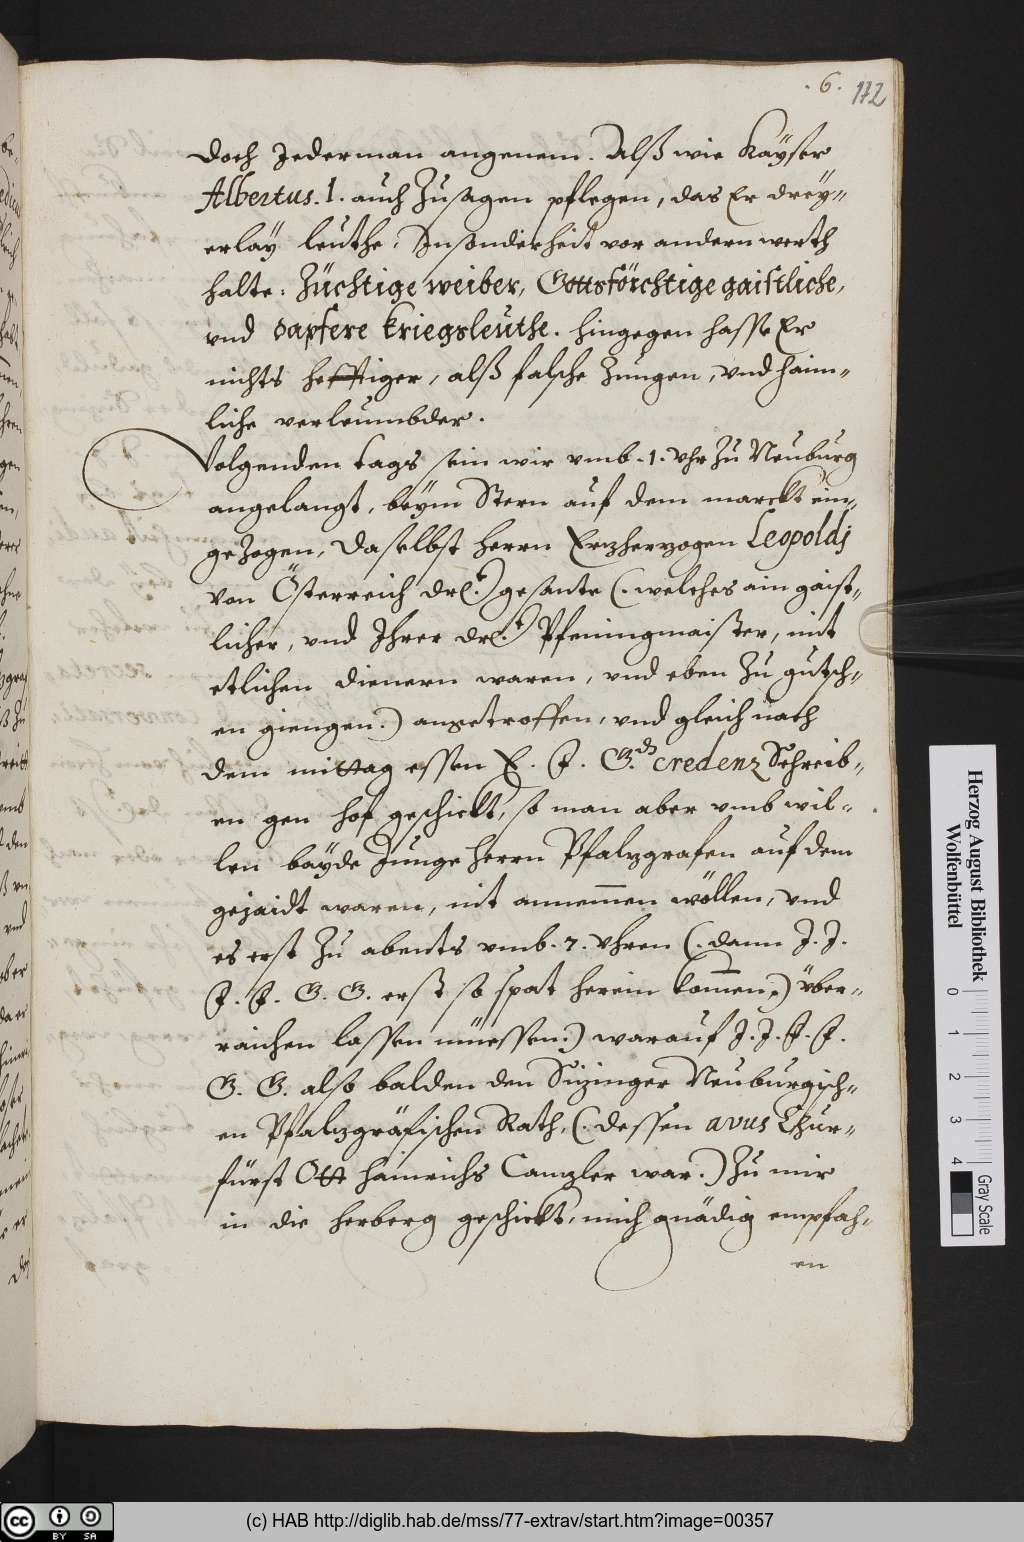 .6. 172
doch Jederman angenem. Alß wie Kaÿser
Albertus. 1. auch Zusagen pflegen, das Er dreÿ-
erlaÿ leuthe, Insonderheit vor andern werth
halte: Züchtige weiber, Gottsförchtige gaistliche,
vnd dapfere kriegsleuthe. hingegen hasse Er
nichts hefftiger, alß falsche Zungen, vnd haim-
liche verleumbder.
Volgenden tags sein wir vmb .1. vhr Zu Neuburg
angelangt, beÿm Stern auf dem marckt ein-
geZogen, daselbst herrn Erzherzogen Leopoldj
von Österreich Drl: gesante (. welches ain gaist-
licher, vnd Ihrer Drl: Pfeningmaister, mit
etlichen dienern waren, vnd eben Zu gutsch-
en giengen.) angetroffen, vnd gleich nach
dem mittag essen E. F. G. credenz Schreib-
en gen hof geschickt, so man aber vmb wil-
len baÿde Junge herrn Pfalzgrafen auf dem
gejaidt waren, nit annemen wöllen, vnd
es erst Zu abents vmb .7. vhren (. dann J. J.
F. F. G. G. erst so spat herein komen.) über-
raichen lassen müessen.) warauf J. J. F. F.
G. G. also balden den Sizinger Neuburgisch-
en Pfalzgräfischen Rath, (. dessen avus Chur-
fürst Ott Hainrichs Canzler war.) Zu mir
in die herberg geschickt, mich gnädig empfah-
en
Herzog August Bibliothek
Wolfenbüttel
0 1 2 3 4
Gray Scale
cc BY SA
(c) HAB http://diglib.hab.de/mss/77-extrav/start.htm?image=00357